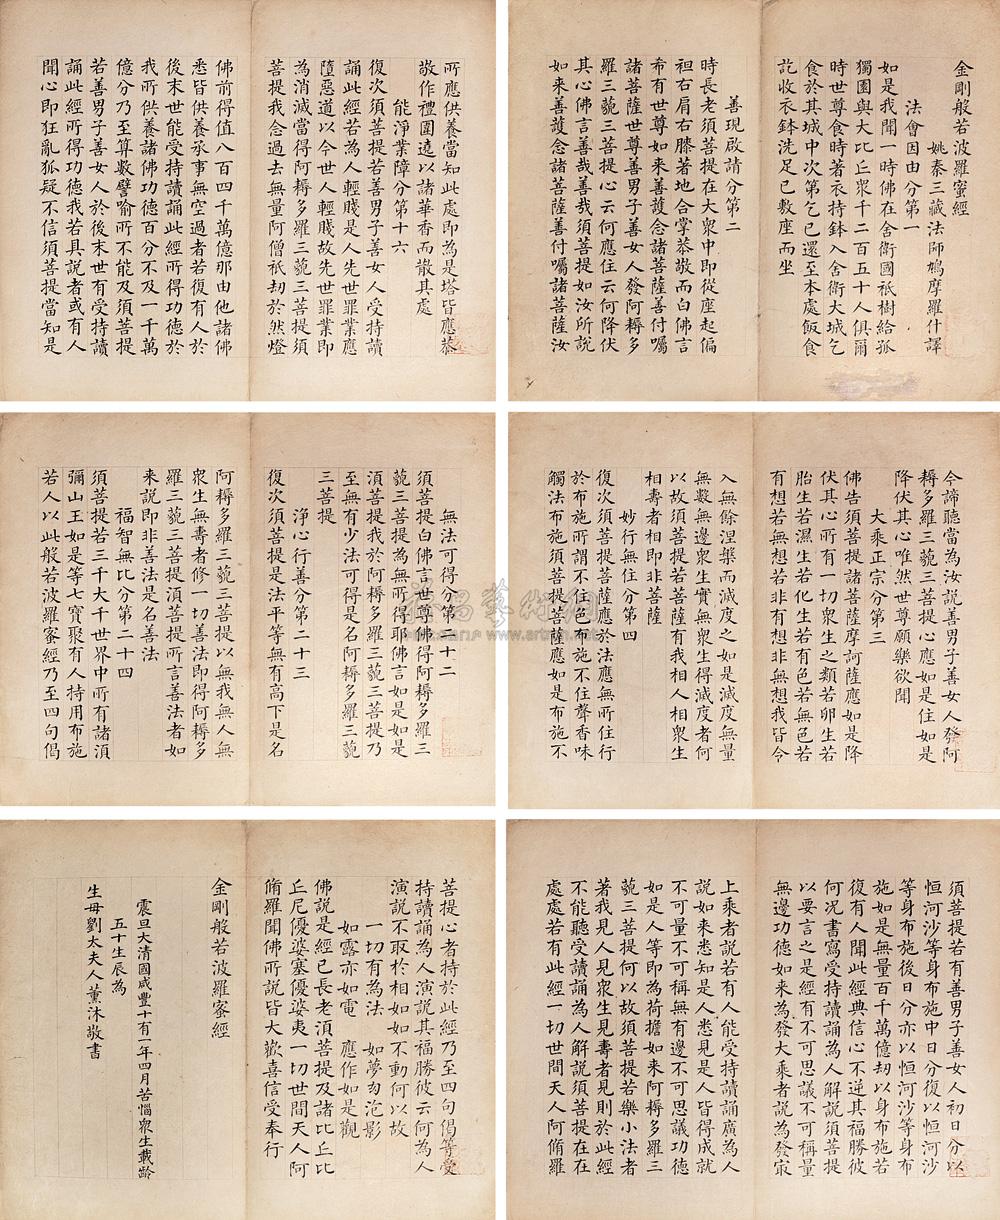 金剛般若波羅蜜經
姚秦三藏法師鳩摩羅什譯
法會因由分第一
如是我聞一時佛在舍衛國祇樹給孤
獨園與大比丘眾千二百五十人俱爾
時世尊食時著衣持鉢入舍衛大城乞
食於其城中次第乞已還至本處飯食
訖收衣鉢洗足已敷座而坐
善現啟請分第二
時長老須菩提在大眾中即從座起偏
袒右肩右膝著地合掌恭敬而白佛言
希有世尊如來善護念諸菩薩善付囑
諸菩薩世尊善男子善女人發阿耨多
羅三藐三菩提心云何應住云何降伏
其心佛言善哉善哉須菩提如汝所說
如來善護念諸菩薩善付囑諸菩薩汝
所應供養當知此處即為是塔皆應恭
敬作禮圍遶以諸華香而散其處
能淨業障分第十六
復次須菩提若善男子善女人受持讀
誦此經若為人輕賤是人先世罪業應
墮惡道以今世人輕賤故先世罪業即
為消滅當得阿耨多羅三藐三菩提須
菩提我念過去無量阿僧祇劫於然燈
佛前得值八百四千萬億那由他諸佛
悉皆供養承事無空過者若復有人於
後末世能受持讀誦此經所得功德於
我所供養諸佛功德百分不及一千萬
億分乃至算數譬喻所不能及須菩提
若善男子善女人於後末世有受持讀
誦此經所得功德我若具說者或有人
聞心即狂亂狐疑不信須菩提當知是
今諦聽當為汝說善男子善女人發阿
耨多羅三藐三菩提心應如是住如是
降伏其心唯然世尊願樂欲聞
大乘正宗分第三
佛告須菩提諸菩薩摩訶薩應如是降
伏其心所有一切眾生之類若卵生若
胎生若濕生若化生若有色若無色若
有想若無想若非有想非無想我皆令
入無餘涅槃而滅度之如是滅度無量
無數無邊眾生實無眾生得滅度者何
以故須菩提若菩薩有我相人相眾生
相壽者相即非菩薩
妙行無住分第四
復次須菩提菩薩應於法應無所住行
於布施所謂不住色布施不住聲香味
觸法布施須菩提菩薩應如是布施不
無法可得分第二十二
須菩提白佛言世尊佛得阿耨多羅三
藐三菩提為無所得耶佛言如是如是
須菩提我於阿耨多羅三藐三菩提乃
至無有少法可得是名阿耨多羅三藐
三菩提
淨心行善分第二十三
復次須菩提是法平等無有高下是名
阿耨多羅三藐三菩提以無我無人無
眾生無壽者修一切善法即得阿耨多
羅三藐三菩提須菩提所言善法者如
來說即非善法是名善法
福智無比分第二十四
須菩提若三千大千世界中所有諸須
彌山王如是等七寶聚有人持用布施
若人以此般若波羅蜜經乃至四句偈
須菩提若有善男子善女人初日分以
恒河沙等身布施中日分復以恒河沙
等身布施後日分亦以恒河沙等身布
施如是無量百千萬億劫以身布施若
復有人聞此經典信心不逆其福勝彼
何況書寫受持讀誦為人解說須菩提
以要言之是經有不可思議不可稱量
無邊功德如來為發大乘者說為發最
上乘者說若有人能受持讀誦廣為人
說如來悉知是人悉見是人皆得成就
不可量不可稱無有邊不可思議功德
如是人等即為荷擔如來阿耨多羅三
藐三菩提何以故須菩提若樂小法者
著我見人見眾生見壽者見則於此經
不能聽受讀誦為人解說須菩提在在
處處若有此經一切世間天人阿脩羅
菩提心者持於此經乃至四句偈等受
持讀誦為人演說其福勝彼云何為人
演說不取於相如如不動何以故
一切有為法　如夢幻泡影
如露亦如電　應作如是觀
佛說是經已長老須菩提及諸比丘比
丘尼優婆塞優婆夷一切世間天人阿
脩羅聞佛所說皆大歡喜信受奉行
金剛般若波羅蜜經
震旦大清國咸豐十有一年四月苦惱眾生載齡
五十生辰為
生母劉太夫人薰沐敬書